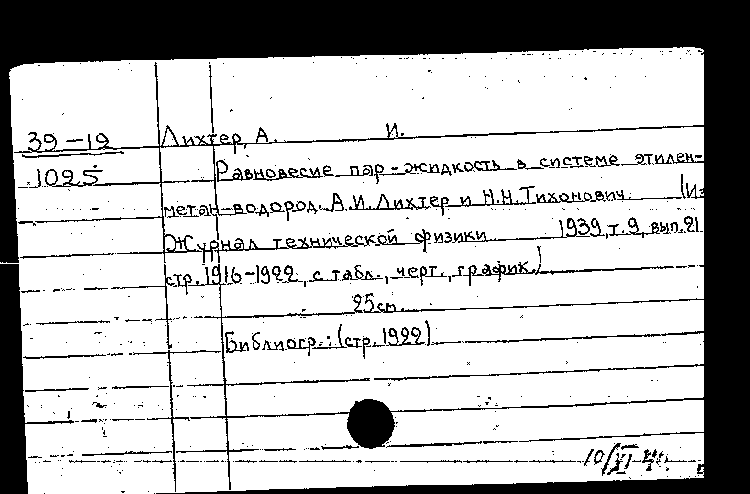 39-19 Лихтер, А. И.
1025 Равновесие пар-жидкость в системе этилен-
метан-водород. А.И. Лихтер и Н.Н. Тихонович. (Из
Журнал технической физики 1939, т. 9, вып. 21
стр. 1916-1922, с табл., черт., график.)
25 см.
Библиогр.: (стр. 1922)
10/XI 40.